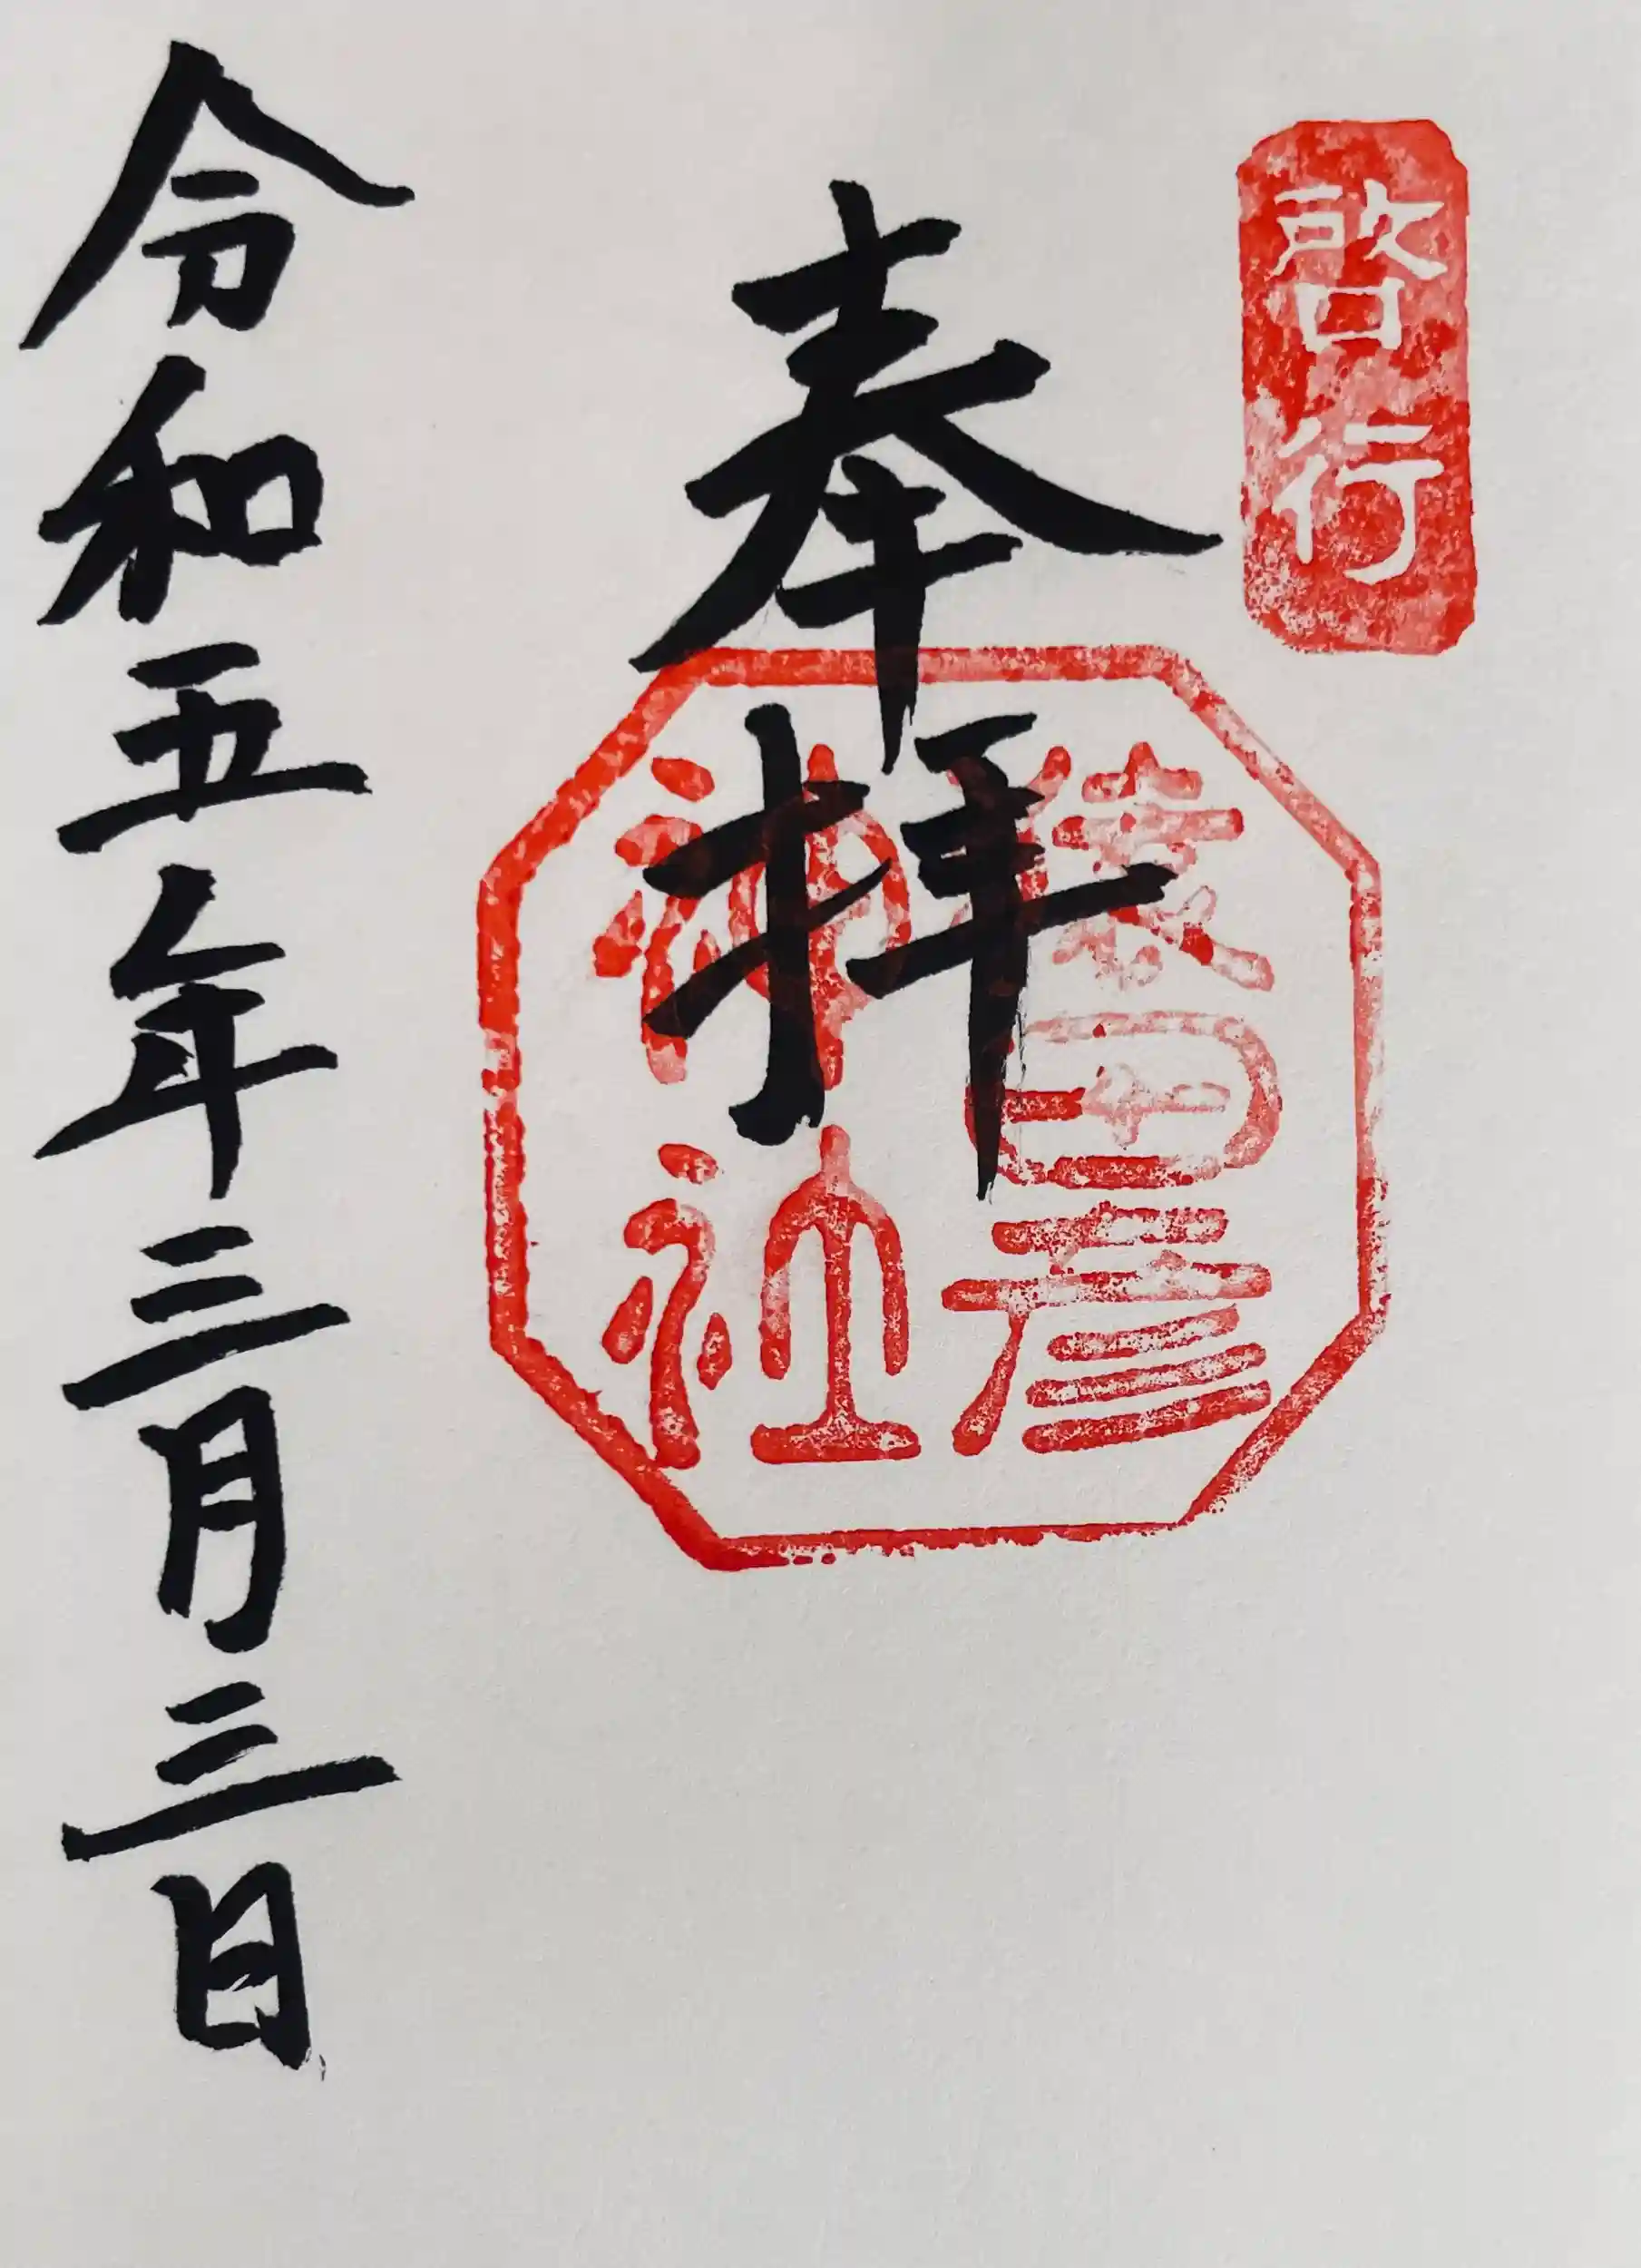 啓行
奉拝
猿田彦
神社
令和五年三月三日